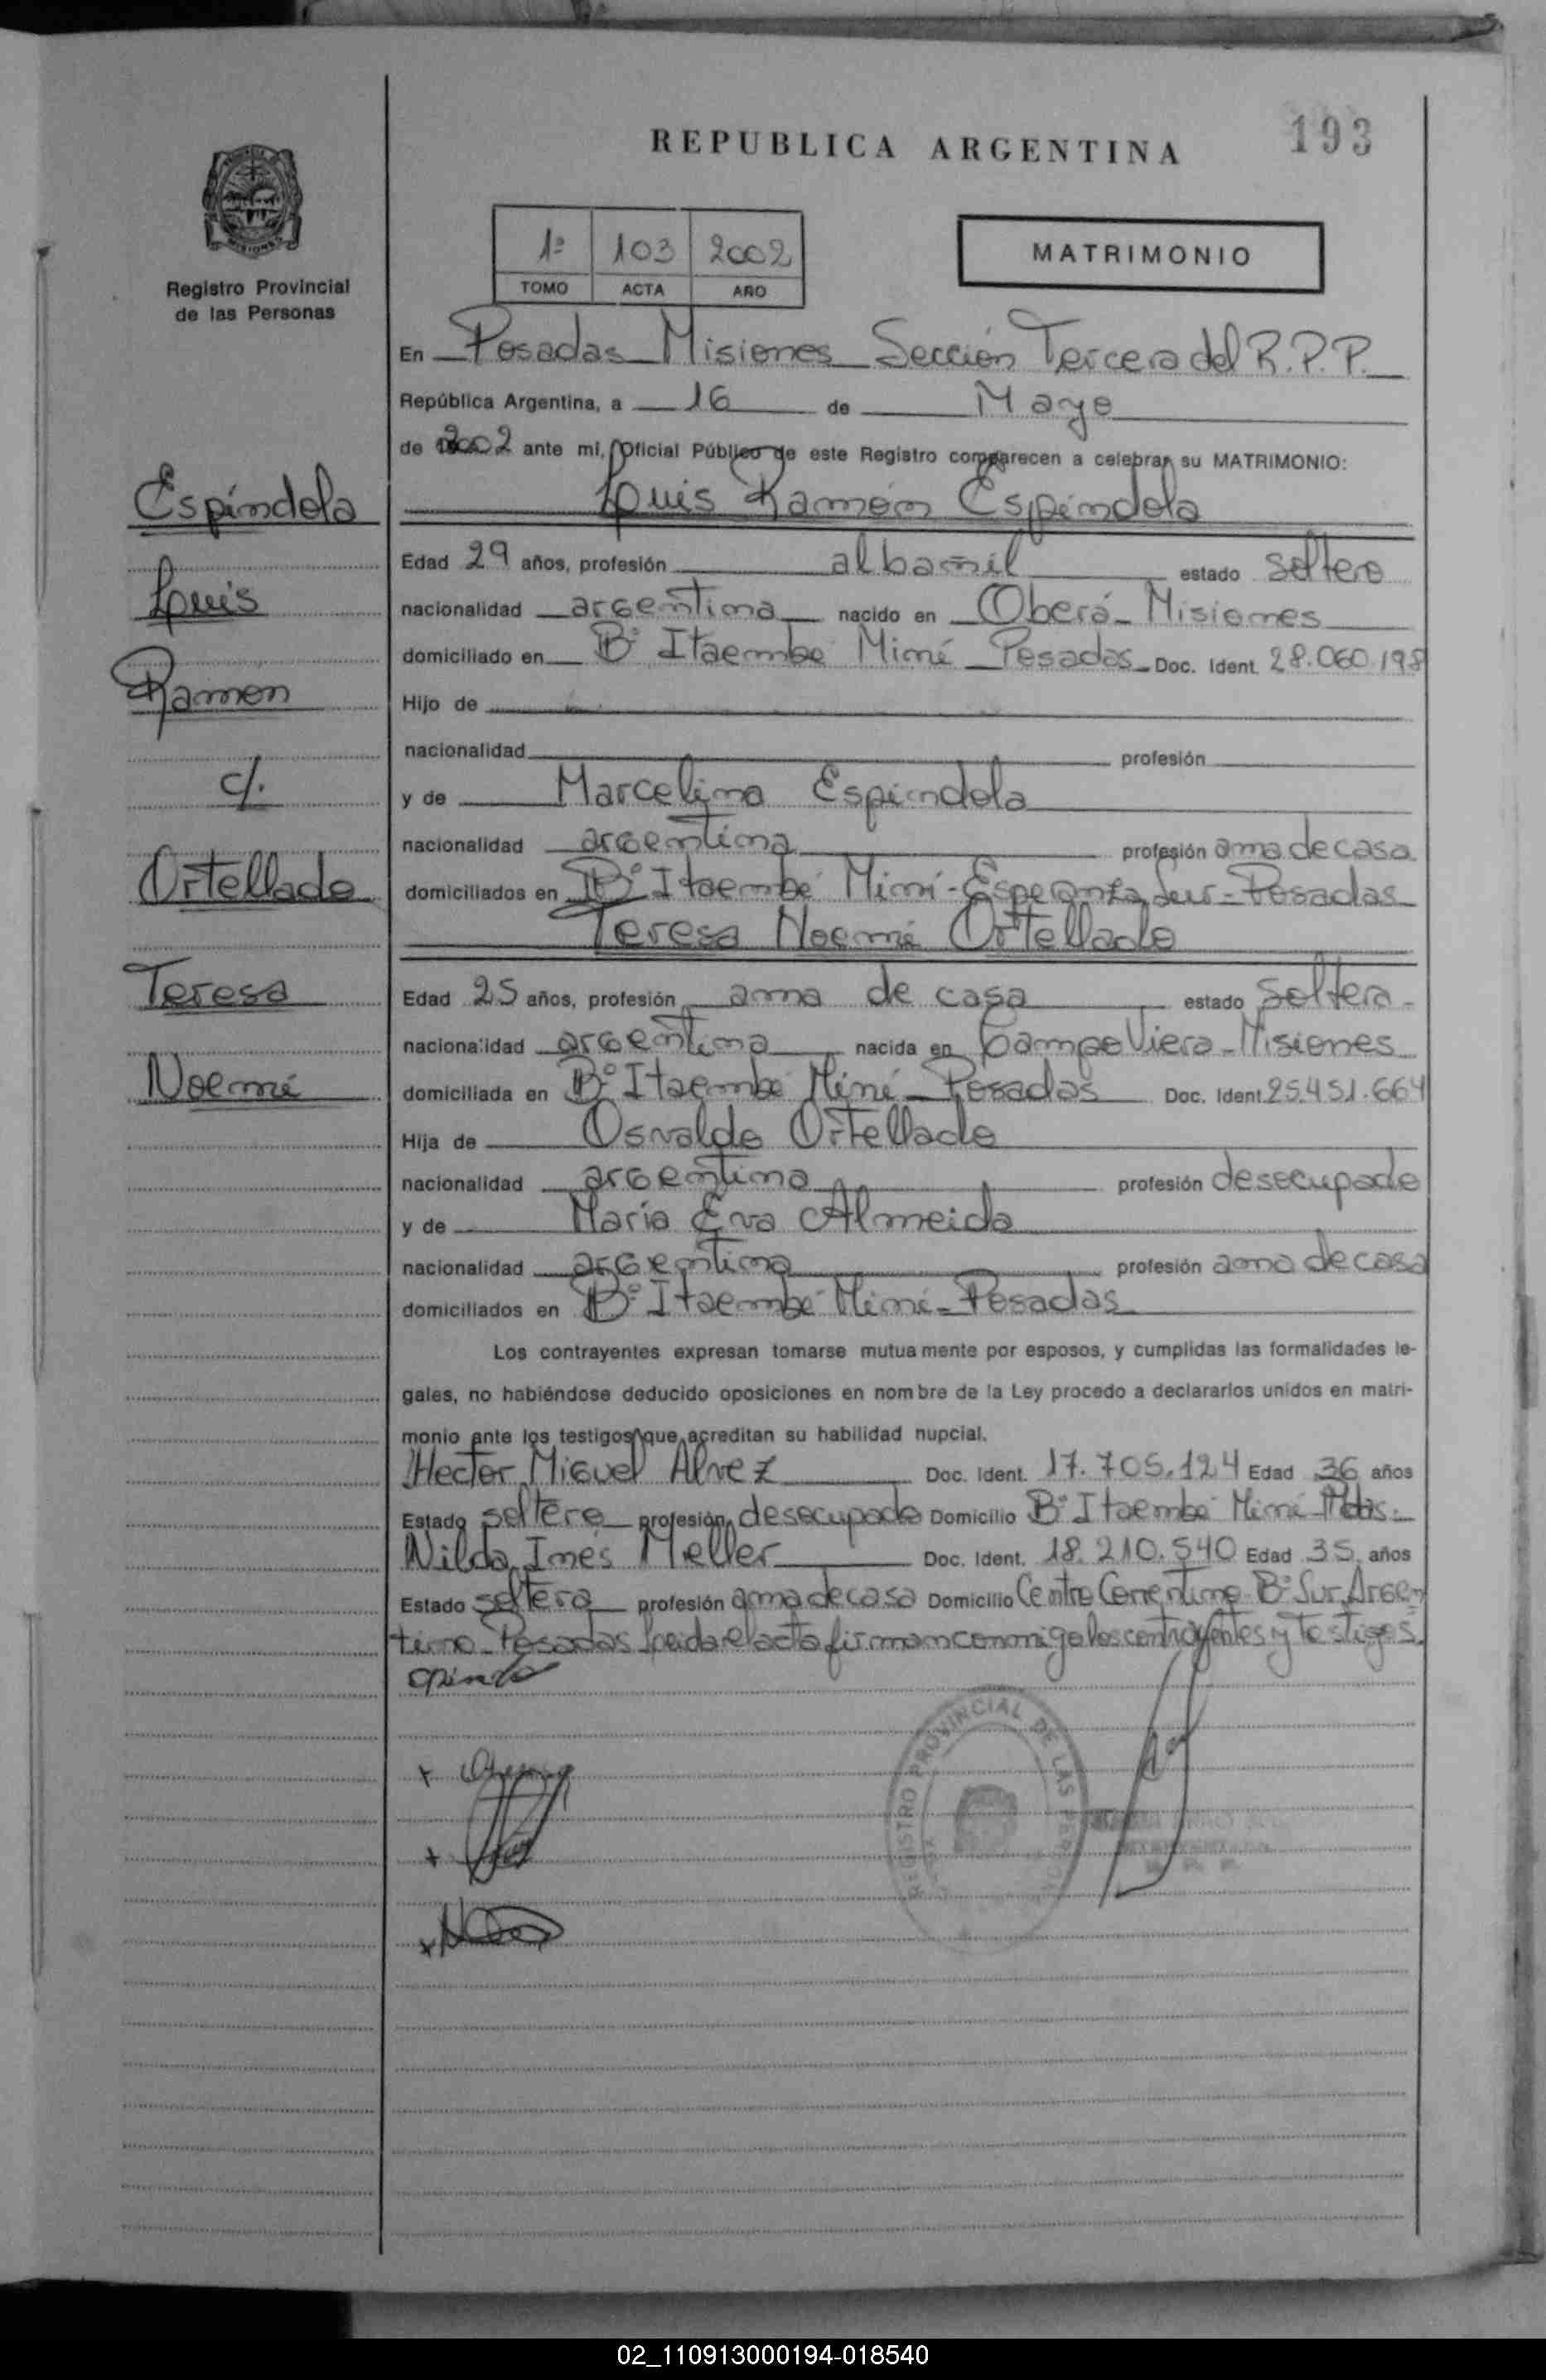 REPUBLICA ARGENTINA
193
Registro Provincial
de las Personas
1º 103 2002
TOMO ACTA AÑO
MATRIMONIO
En Posadas Misiones Sección Tercera del R.P.P.
República Argentina, a 16 de Mayo
de 2002 ante mi, Oficial Público de este Registro comparecen a celebrar su MATRIMONIO:
Espíndola
Luis
Ramon
c/.
Ortellado
Teresa
Noemí
Luis Ramón Espíndola
Edad 29 años, profesión albañil estado soltero
nacionalidad argentina nacido en Oberá - Misiones
domiciliado en Bº Itaembé Miní - Posadas - Doc. Ident. 28.060.198
Hijo de
nacionalidad profesión
y de Marcelina Espíndola
nacionalidad argentina profesión ama de casa
domiciliados en Bº Itaembé Miní - Esperanza Sur - Posadas
Teresa Noemí Ortellado
Edad 25 años, profesión ama de casa estado soltera -
nacionalidad argentina nacida en Campo Viera - Misiones
domiciliada en Bº Itaembé Miní - Posadas Doc. Ident. 25.451.664
Hija de Osvaldo Ortellado
nacionalidad argentina profesión desocupado
y de María Eva Almeida
nacionalidad argentina profesión ama de casa
domiciliados en Bº Itaembé Miní - Posadas
Los contrayentes expresan tomarse mutuamente por esposos, y cumplidas las formalidades le-
gales, no habiéndose deducido oposiciones en nombre de la Ley procedo a declararlos unidos en matri-
monio ante los testigos que acreditan su habilidad nupcial.
Hector Miguel Alvez Doc. Ident. 17.705.124 Edad 36 años
Estado soltero profesión desocupado Domicilio Bº Itaembé Miní - Pdas.
Nilda Inés Meller Doc. Ident. 18.210.540 Edad 35 años
Estado soltera profesión ama de casa Domicilio Centro Correntino - Bº Sur Argen
tino - Posadas Leida el acta firman conmigo los contrayentes y testigos.
REGISTRO PROVINCIAL DE LAS PERSONAS
02_110913000194-018540